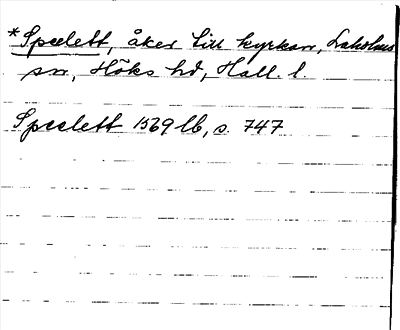 *Speelett, åker till kyrkan, Laholms
sn, Höks hd, Hall. l.
Speelett 1569 lb, s. 747